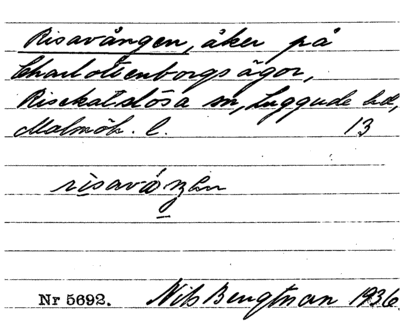 Risavången, åker på
Charlottenborgs ägor,
Risekatslösa sn, Luggude hd,
Malmöh. l. 13
Nr 5692. Nils Bengtman 1936